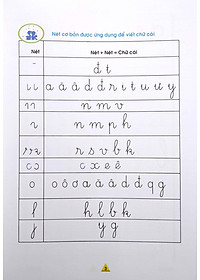 Nét cơ bản được ứng dụng để viết chữ cái
Nét Nét + Nét = Chữ cái
đ t
a ă â d đ r i t u ư y
n m v
n m p h
r s v b k
c x e ê
o ô ơ a ă â d đ q g
h l b k
y g